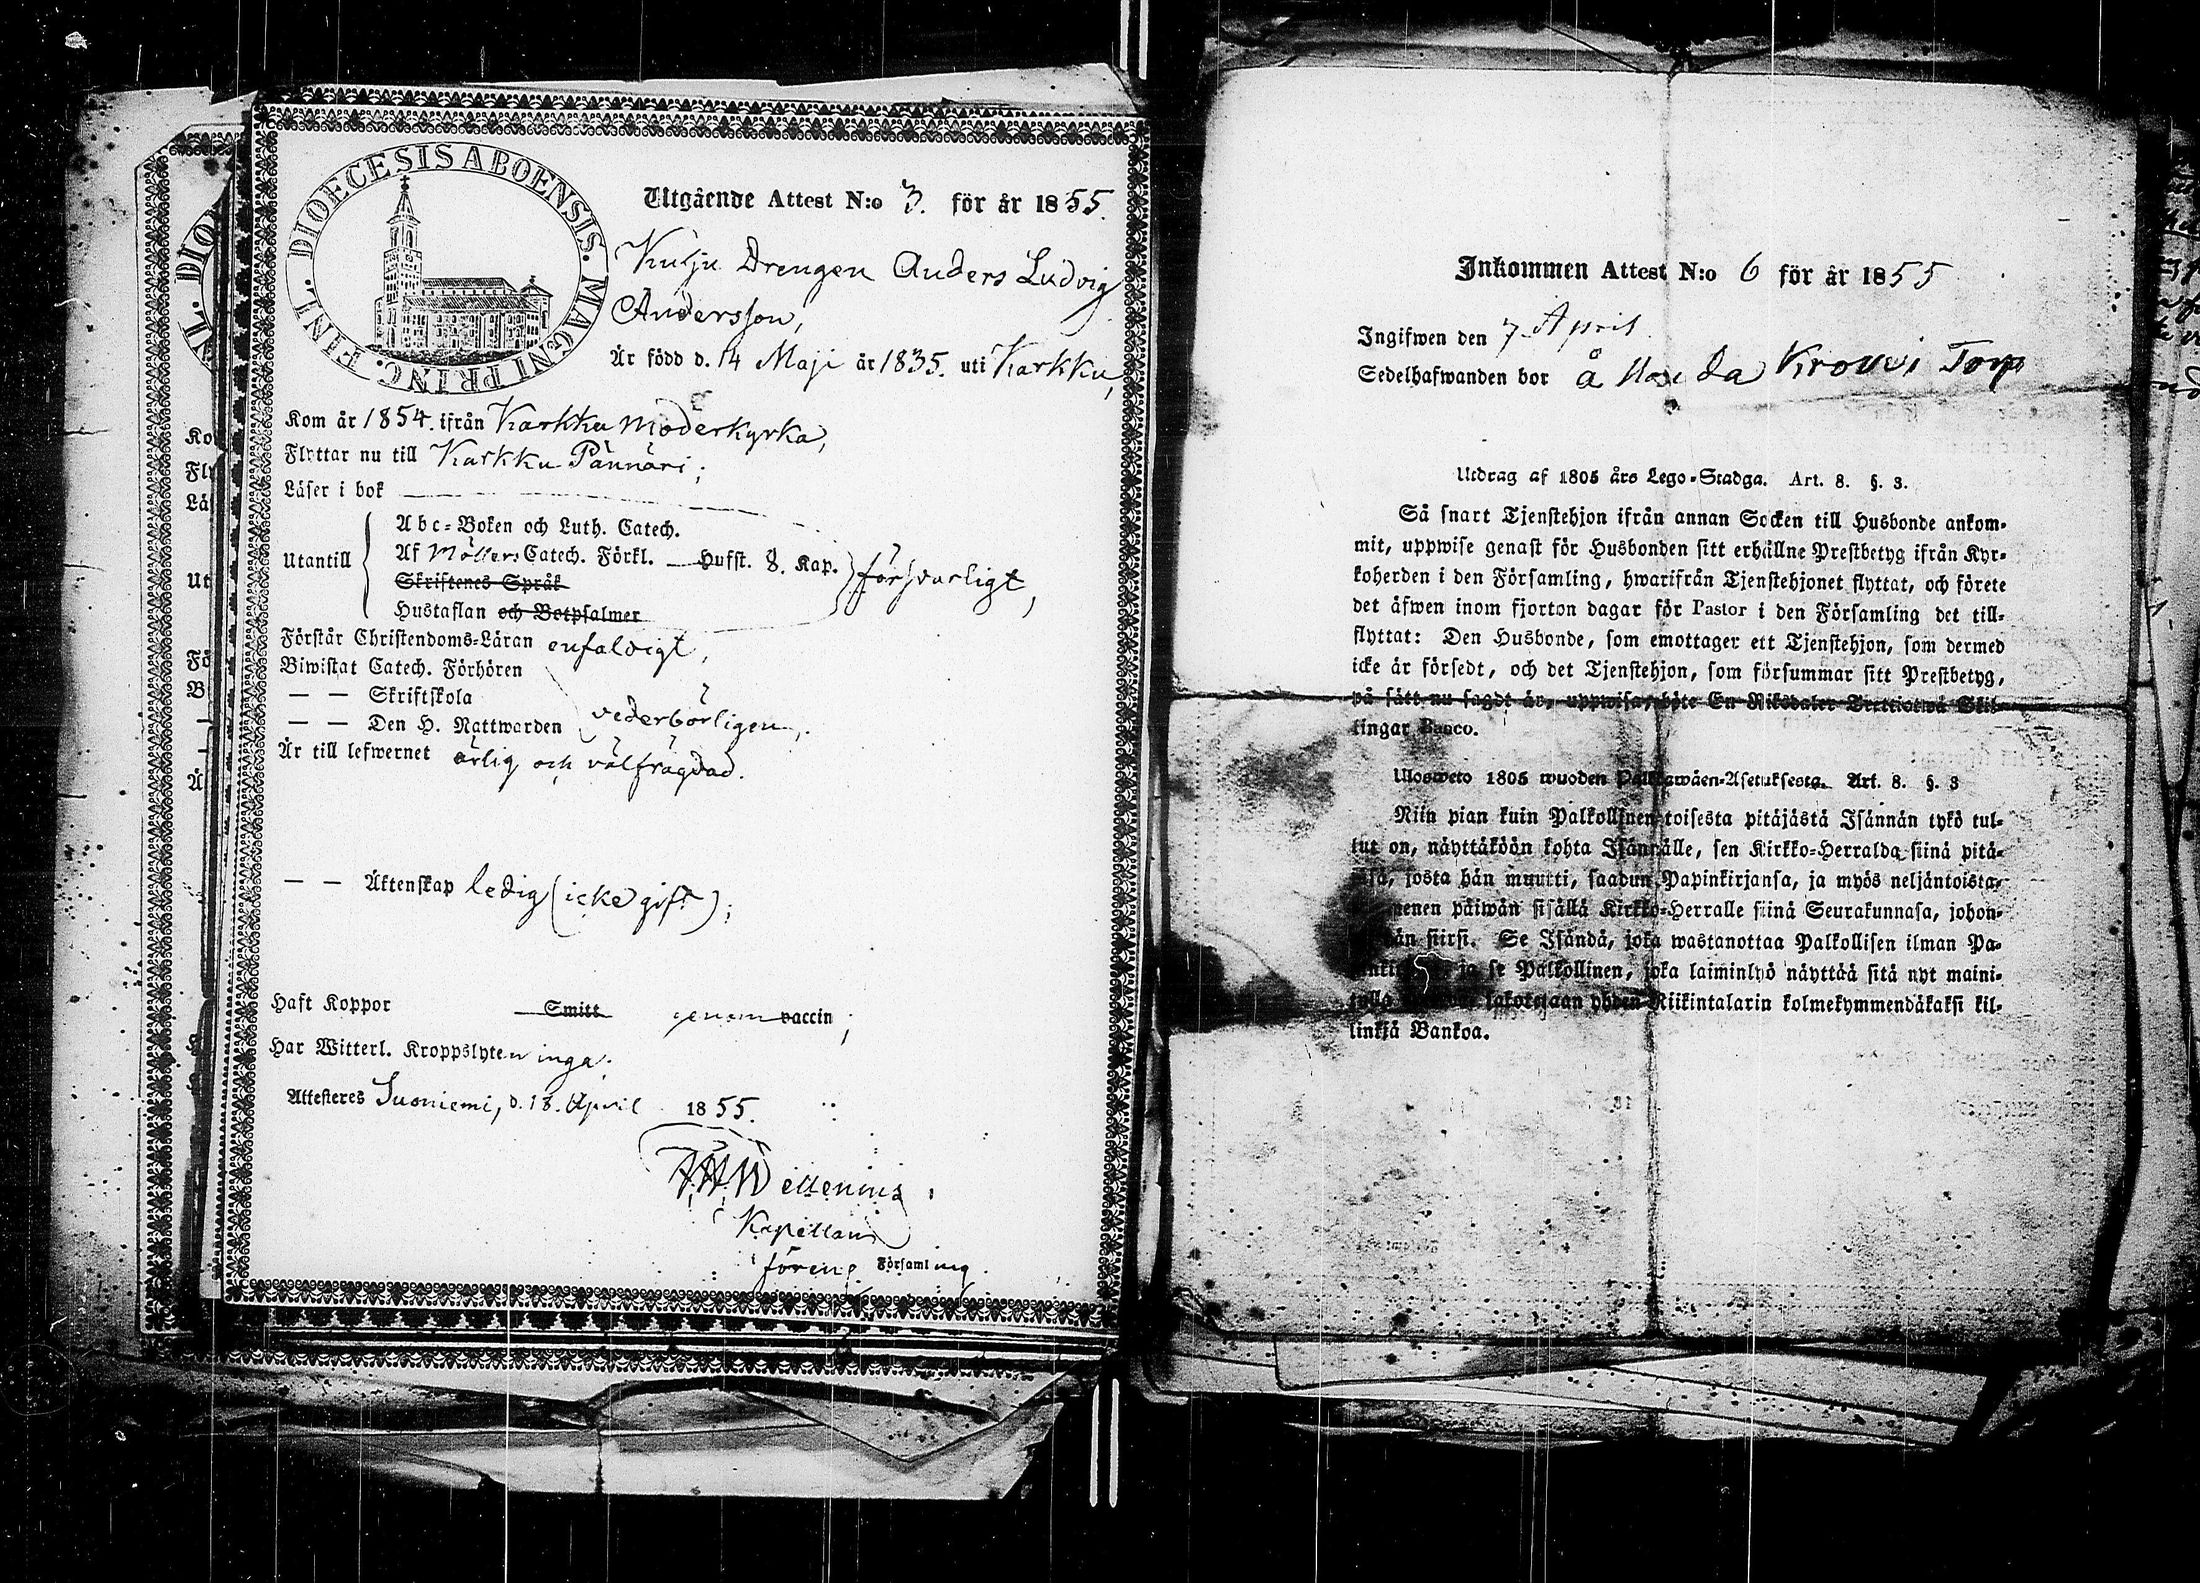 DIOECESIS ABOENSIS. MAGNI PRINC. FINL.
Utgående Attest N:o 3. för år 1855.
Kulju Drengen Anders Ludvig
Andersson,
Är född d. 14 Maji år 1835. uti Karkku,
Kom år 1854. ifrån Karkku Moderkyrka,
Flyttar nu till Karkku Pännäri;
Läser i bok
Utantill
Abc-Boken och Luth. Catech.
Af Möllers Catech. Förkl. — Hufst. 8. Kap.
Skriftenes Språk
Hustaflan och Botpsalmer
försvarligt,
Förstår Christendoms-Läran enfaldigt,
Biwistat Catech. Förhören
— — Skriftskola
— — Den H. Nattwarden
vederbörligen,
Är till lefwernet ärlig och välfrägdad.
— — Äktenskap ledig (icke gift);
Haft Koppor Smitt genom vaccin;
Har Witterl. Kroppslyten inga.
Attesteres Suoniemi, d. 18. April 1855.
Kapellan
förene Församling.
Inkommen Attest N:o 6 för år 1855
Ingifwen den 7 April
Sedelhafwanden bor å Krouvi Torp
Utdrag af 1805 års Lego-Stadga. Art. 8. §. 3.
Så snart Tjenstehjon ifrån annan Socken till Husbonde ankom-
mit, uppwise genast för Husbonden sitt erhållne Prestbetyg ifrån Kyr-
koherden i den Församling, hwarifrån Tjenstehjonet flyttat, och förete
det äfwen inom fjorton dagar för Pastor i den Församling det till-
flyttat: Den Husbonde, som emottager ett Tjenstehjon, som dermed
icke är försedt, och det Tjenstehjon, som försummar sitt Prestbetyg,
på sätt nu sagdt är, uppwisa, böte En Riksdaler Trettiotwå Skil-
lingar Banco.
Ulosweto 1805 wuoden Palkkawäen-Asetuksesta. Art. 8. §. 3
Niin pian kuin Palkollinen toisesta pitäjästä Isännän tykö tul-
lut on, näyttäköön kohta Isännälle, sen Kirkko-Herralda siinä pitä-
jäsä, josta hän muutti, saadun Papinkirjansa, ja myös neljäntoista-
kymmenen päiwän sisällä Kirkko-Herralle siinä Seurakunnasa, johon-
ga hän siirsi. Se Isändä, joka wastanottaa Palkollisen ilman Pa-
ja se Palkollinen, joka laiminlyö näyttää sitä nyt maini-
sakotetaan yhden Riikintalarin kolmekymmendäkaksi kil-
linkiä Bankoa.